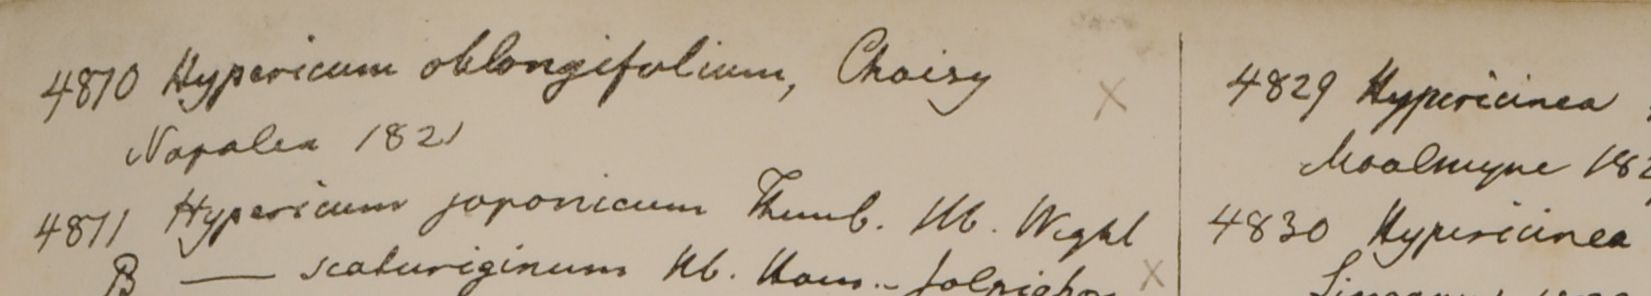 4810 Hypericum oblongifolium, Choisy
Napalea 1821
4811 Hypericum japonicum Thunb. Hb. Wight
B — scaturiginum Hb. Ham.
4829 Hypericinea
Moalmyne 182
4830 Hypericinea